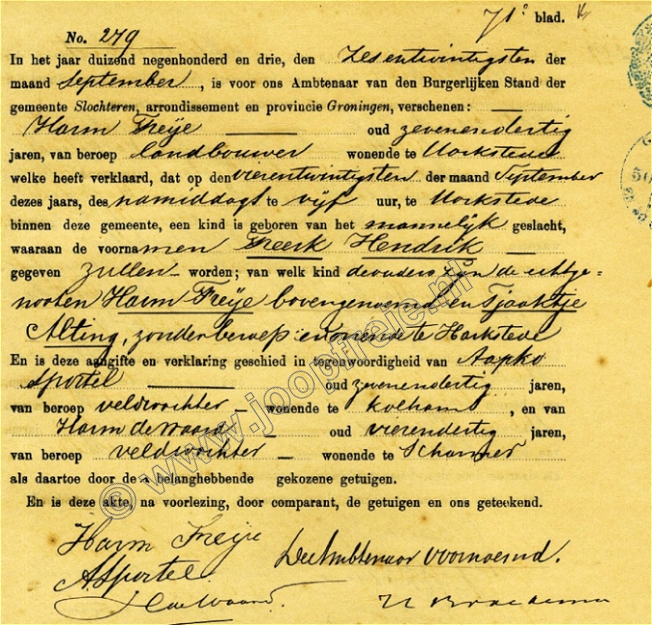 71e blad.
No. 279
In het jaar duizend negenhonderd en drie, den Zesentwintigsten der
maand September, is voor ons Ambtenaar van den Burgerlijken Stand der
gemeente Slochteren, arrondissement en provincie Groningen, verschenen:
Harm Freije oud zevenendertig
jaren, van beroep landbouwer wonende te Harkstede
welke heeft verklaard, dat op den vierentwintigsten der maand September
dezes jaars, des namiddags te vijf uur, te Harkstede
binnen deze gemeente, een kind is geboren van het mannelijk geslacht,
waaraan de voornamen Freerk Hendrik
gegeven zullen worden; van welk kind de ouders zijn de echtge-
nooten Harm Freije bovengenoemd en Tjaaktje
Alting, zonder beroep, wonende te Harkstede
En is deze aangifte en verklaring geschied in tegenwoordigheid van Aapko
Sportel oud zevenendertig jaren,
van beroep veldwachter wonende te Kolham, en van
Harm de Waard oud vierendertig jaren,
van beroep veldwachter wonende te Scharmer
als daartoe door de belanghebbende gekozene getuigen.
En is deze akte, na voorlezing, door comparant, de getuigen en ons geteekend.
Harm Freije
De Ambtenaar voornoemd.
A Sportel.
H de Waard.
© www.joopfreije.nl